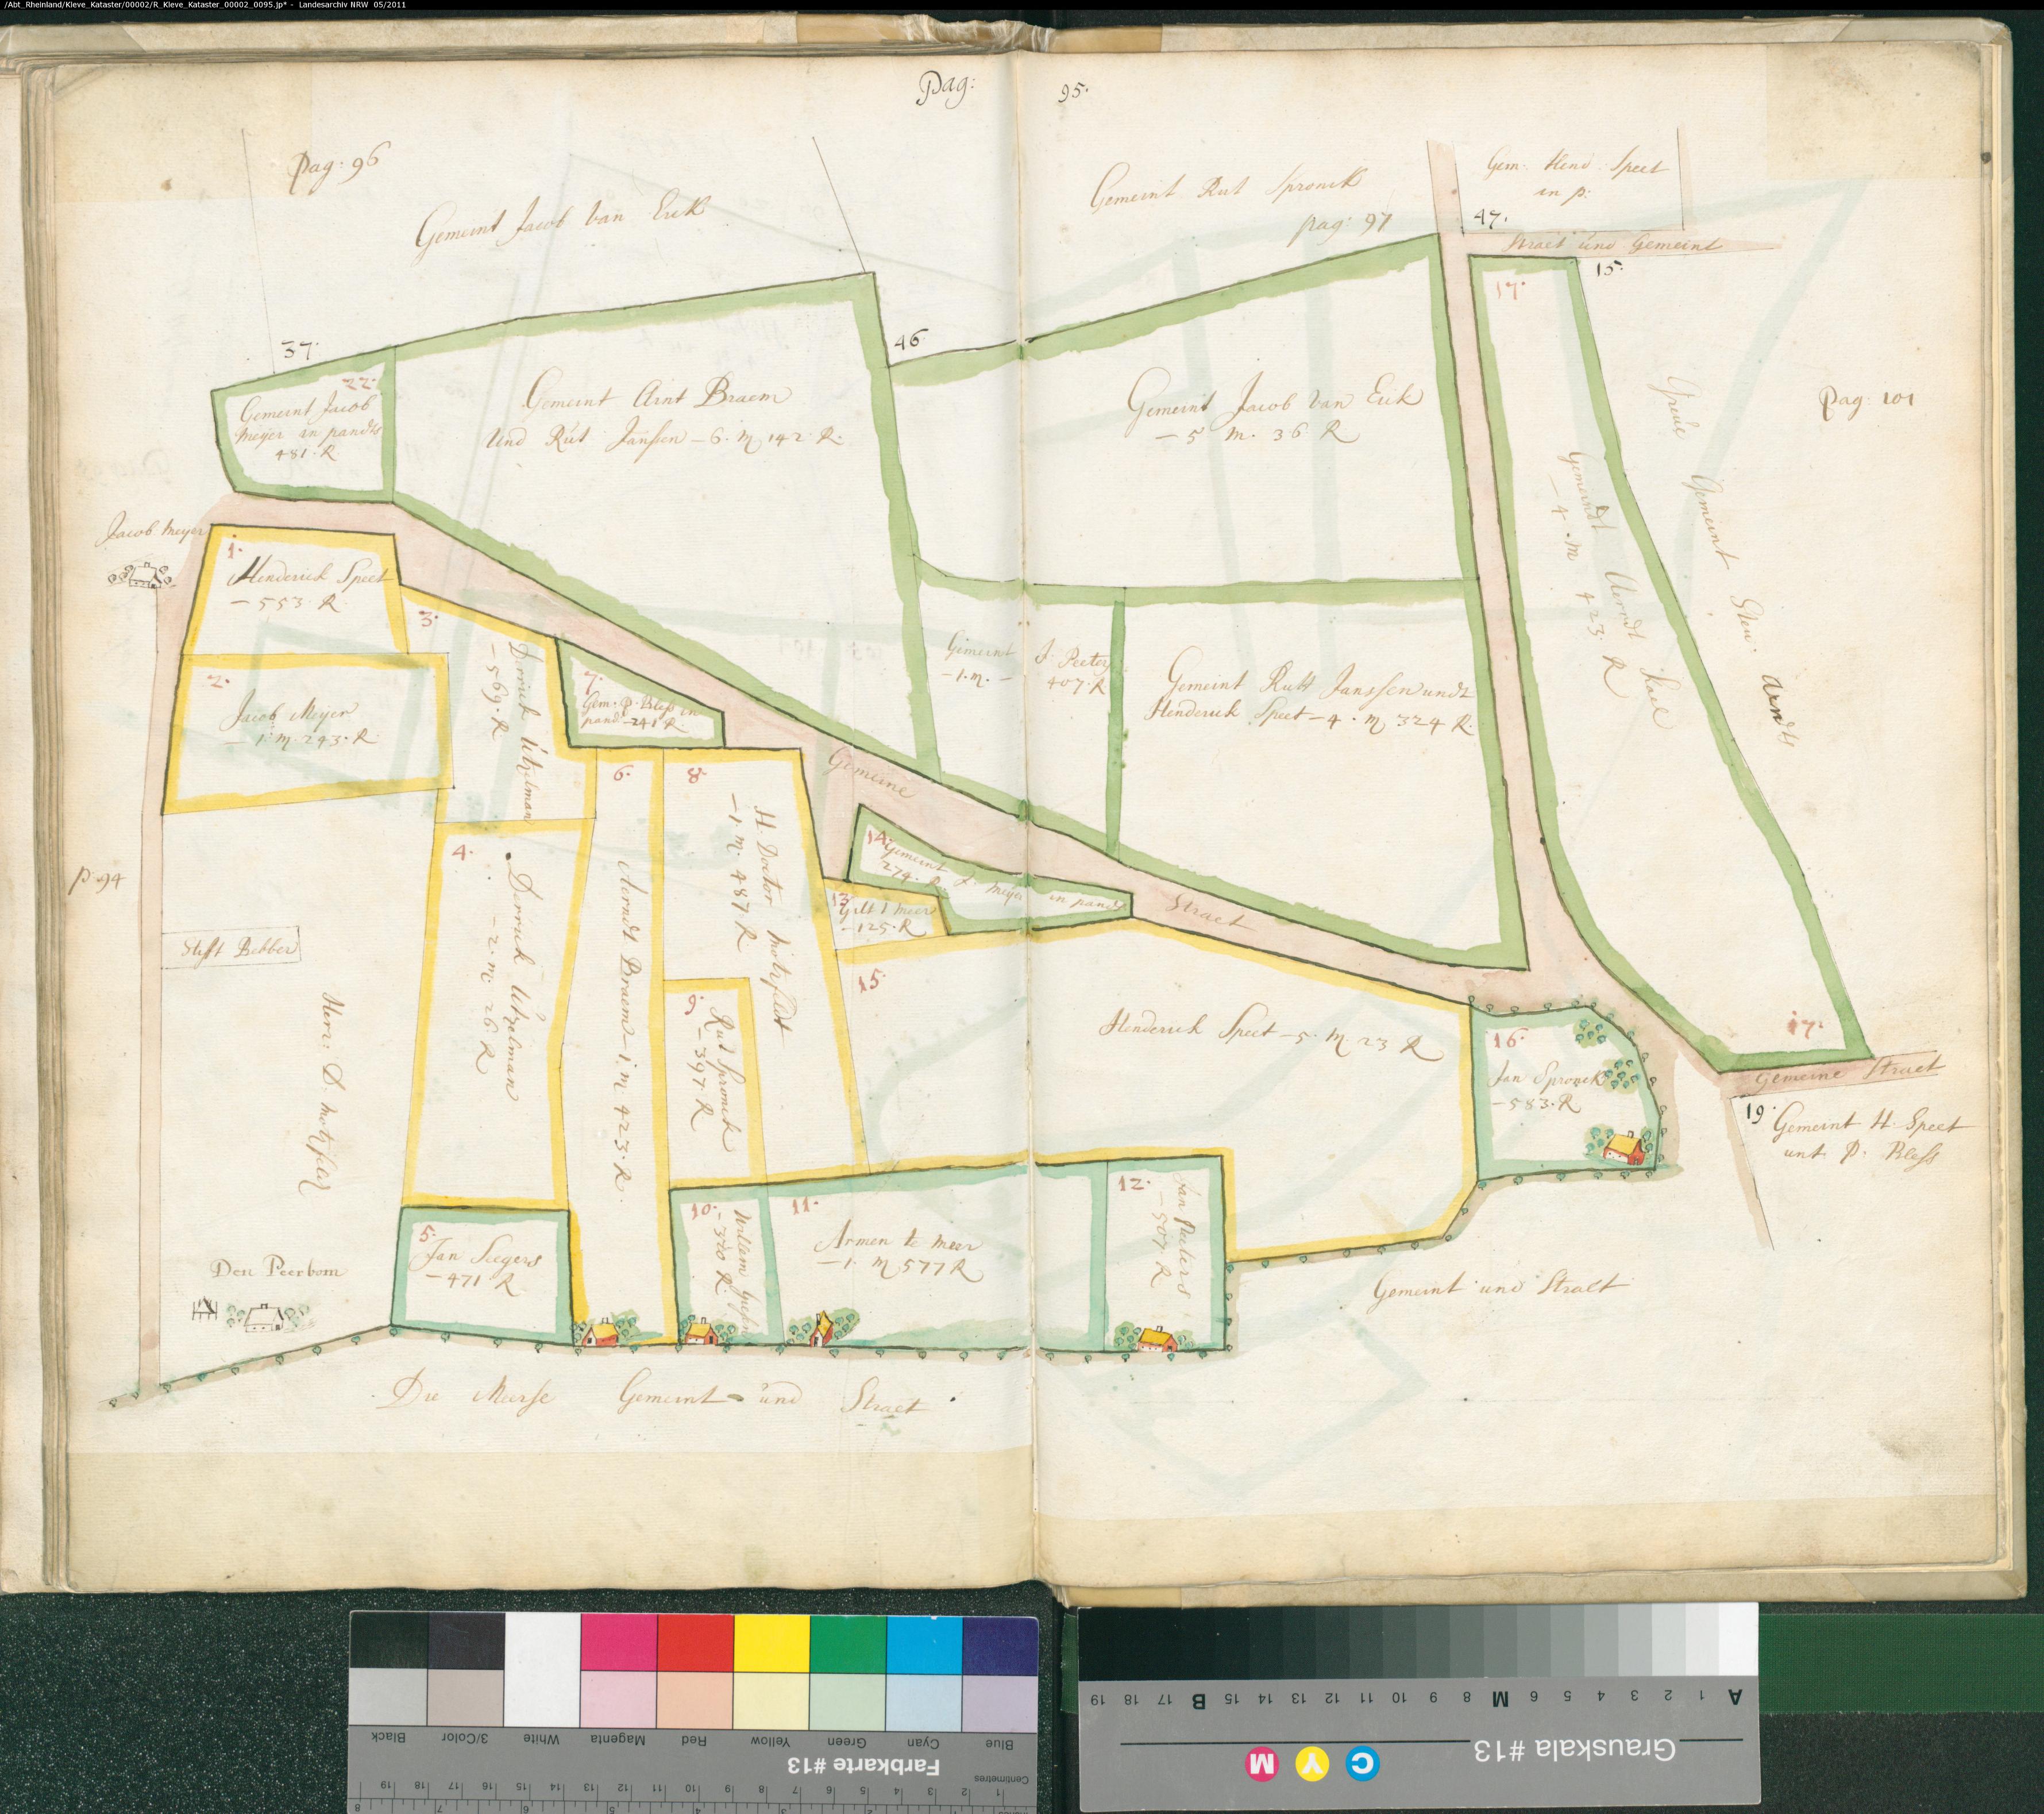 /Abt_Rheinland/Kleve_Kataster/00002/R_Kleve_Kataster_00002_0095.jp* - Landesarchiv NRW 05/2011
Pag: 95.
Pag: 96
Gemeint Jacob Van Eick
Gemeint Rut Spronck
pag: 97
Gem. Hend. Speet
in p:
47.
Straet und Gemeint
15.
37.
46.
22.
Gemeint Jacob
Meyer in pandts
481. R.
Gemeint Arnt Braem
Und Rut Janssen - 6. M 142 R.
Gemeint Jacob Van Eick
- 5 M. 36 R
17.
Gemeindt Aerndt
- 4. M 423 R
Gemeint
Pag: 101
Jacob Meyer
1.
Henderick Speet
- 553 R.
2.
Jacob Meyer
- 1. M. 243. R
3.
Derrick Utzelman
- 569. R
7.
Gem. P. Bless in
pand - 241 R.
Gemeint J. Peeters
- 1. M. - 407. R
Gemeint Rutt Janssen undt
Henderick Speet - 4. M 324 R.
Gemeine Straet
14.
Gemeint J. Meyer in pandt
274. R.
13.
- 125. R
4.
Derrick Utzelman
- 2. M. 26. R
6.
Aerndt Braem - 1. M 423. R.
8.
H. Doctor
- 1. M. 487 R
9.
Rut Spronck
- 397. R
15.
Henderick Speet - 5. M 23 R
16.
Jan Spronck
- 583. R
17.
Gemeine Straet
19.
Gemeint H. Speet
unt P. Bless
p. 94
Stifft Bebber
Herr: D.
Den Peerbom
5.
Jan Seegers
- 471 R
10.
Willem
- 340 R.
11.
Armen te Meer
- 1. M 577 R
12.
Jan Peeters
- 507 R
Gemeint und Straet
Die Meerse Gemeint und Straet
Black
3/Color
White
Magenta
Red
Yellow
Green
Cyan
Blue
Farbkarte #13
Centimetres
19 18 17 16 15 14 13 12 11 10 9 8 7 6 5 4 3 2 1
A 1 2 3 4 5 6 M 8 9 10 11 12 13 14 15 B 17 18 19
Grauskala #13
C Y M